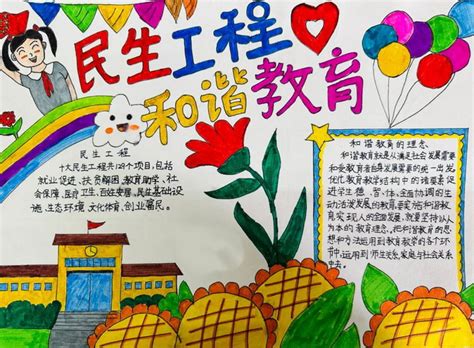 民生工程
和谐教育
民生工程
十大民生工程共129个项目,包括
就业促进、扶贫解困、教育助学、社
会保障、医疗卫生、百姓安居、民生基础设
施、生态环境、文化体育、创业富民。
和谐教育的理念
和谐教育就是从满足社会发展需要
和受教育者自身发展需要的统一出发
优化教育教学结构中的诸要素促
进学生德、智、体、全面协调的生
动活泼发展的教育。素质教育和谐教
育实现人的全面发展,就要坚持以人
为本的教育理念,把和谐教育的思
想和方法运用到教育教学的各个环
节中,运用到师生关系,家庭与社会关系
中去。